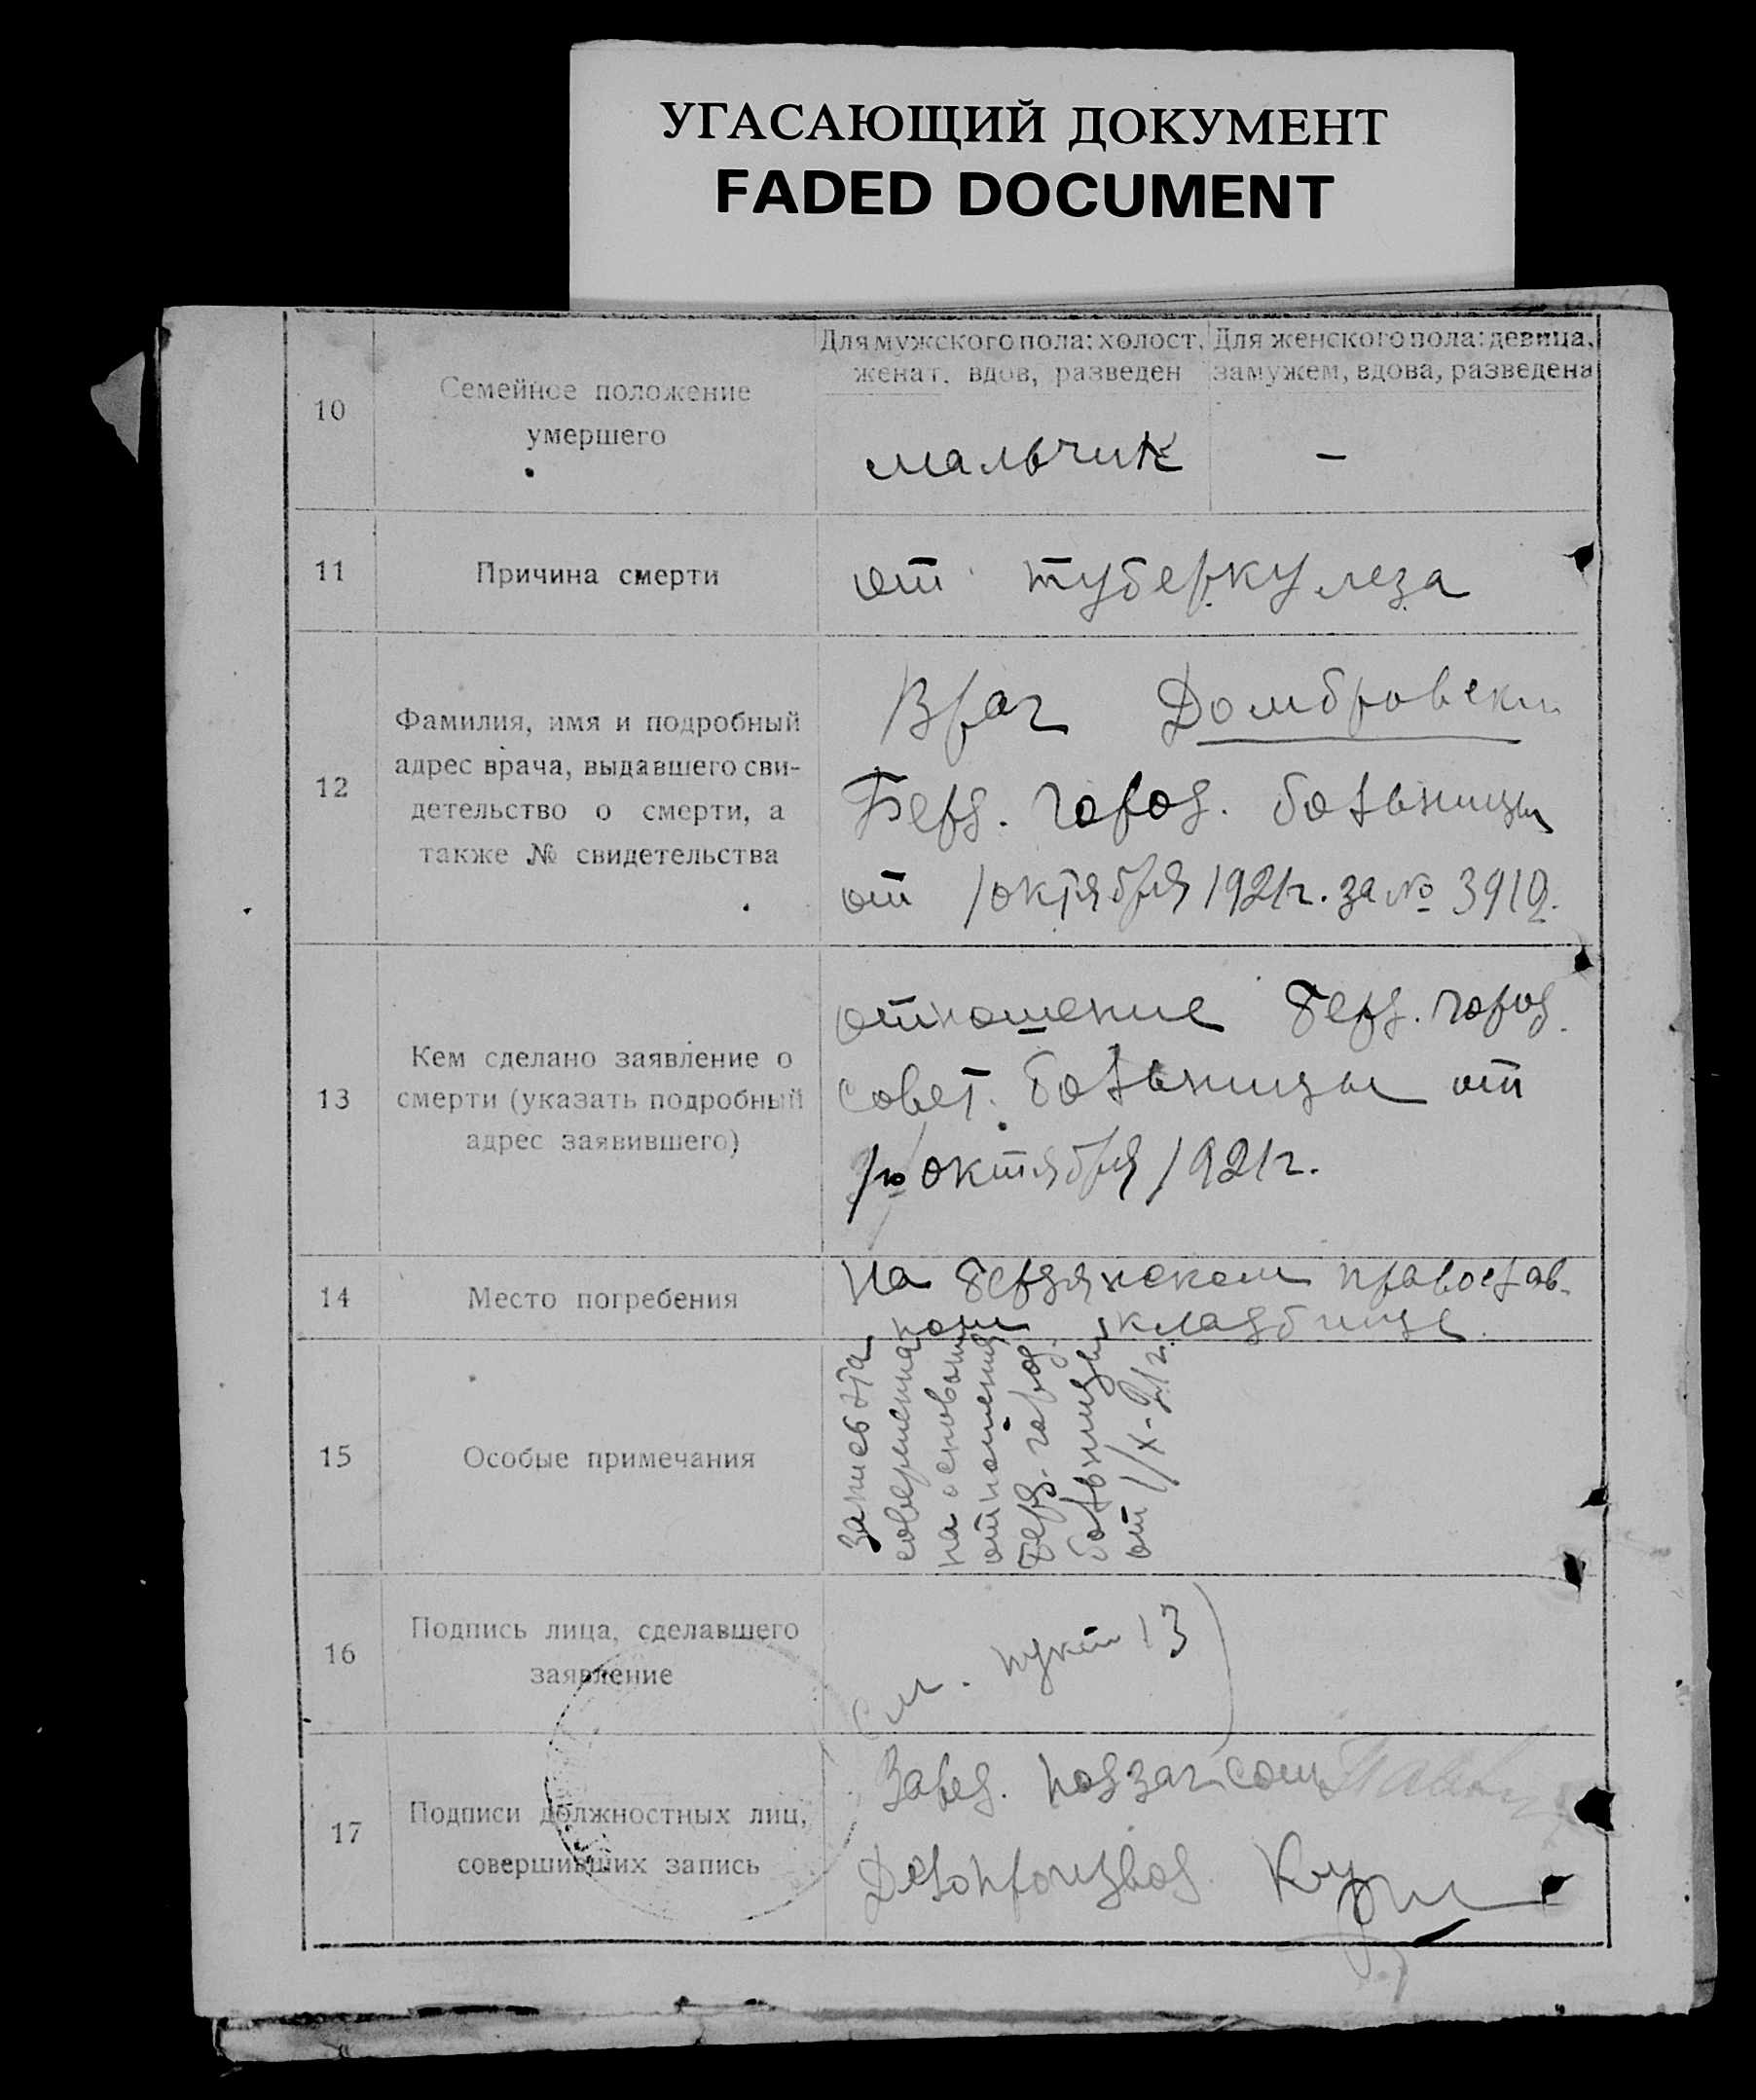 УГАСАЮЩИЙ ДОКУМЕНТ
FADED DOCUMENT
10
Семейное положение
умершего
Для мужского пола: холост,
женат, вдов, разведен
Для женского пола: девица,
замужем, вдова, разведена
мальчик
–
11
Причина смерти
от туберкулеза
12
Фамилия, имя и подробный
адрес врача, выдавшего сви-
детельство о смерти, а
также № свидетельства
Врач Домбровски
Берд. город. больницы
от 1 октября 1921 г. за № 3910.
13
Кем сделано заявление о
смерти (указать подробный
адрес заявившего)
отношение Берд. город.
совет. больницы от
1го октября 1921 г.
14
Место погребения
На бердянском православ-
ном кладбище.
15
Особые примечания
запись эта
совершена
на основании
отношения
Берд. город.
больницы
от 1/X-21 г.
16
Подпись лица, сделавшего
заявление
см. пункт 13
17
Подписи должностных лиц,
совершивших запись
Завед. подзагсом
Делопроизвод.